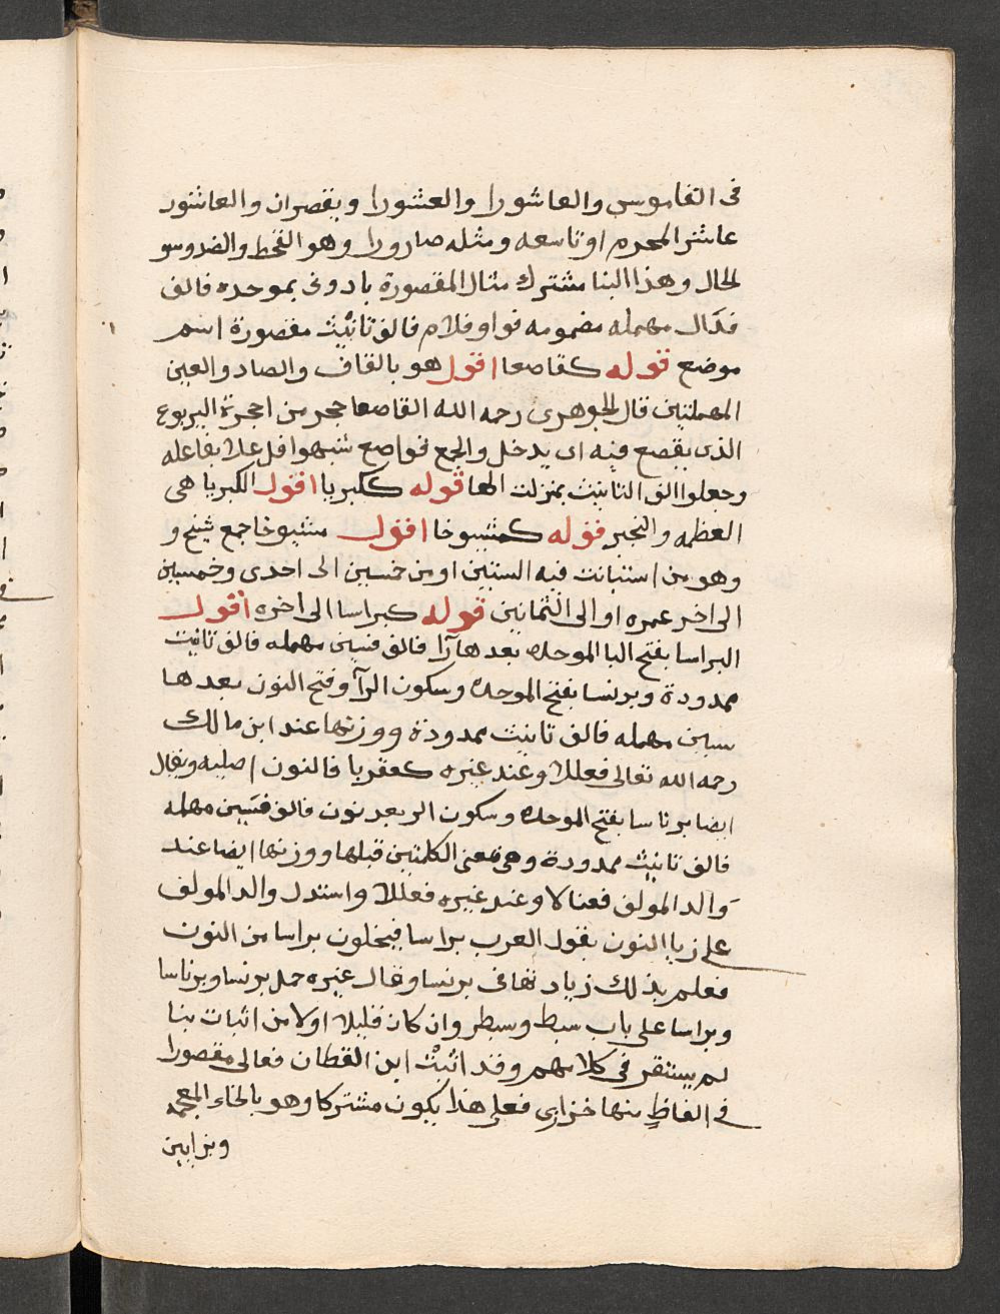 فى القاموس والعاشورا والعشورا ويقصران والعاشور
عاشر المحرم او تاسعه ومثله صارورا وهو القحط والضروسو
لحال وهذا البنا مشترك مثال المقصورة بادولى بموحده فالف
فدال مهمله مضمومه فواو فلام فالف تانيث مقصورة اسم
موضع قوله كقاصعا اقول هو بالقاف والصاد والعين
المهملتين قال الجوهرى رحمه الله القاصعا جحر من احجرة اليربوع
الذى يقصع فيه اى يدخل والجمع قواصع شبهوا فاعلا بفاعله
وجعلوا الف التانيث بمنزلت الها قوله ككبريا اقول الكبريا هى
العظمه والتجبر قوله كمشيوخا اقول مشيوخا جمع شيخ و
وهو من استبانت فيه السنين او من خمسين الى احدى وخمسين
الى اخر عمره او الى الثمانين قوله كبراسا الى اخره اقول
البراسا بفتح البا الموحده بعدها رآ فالف فسين مهمله فالف تانيث
ممدودة وبرنسا بفتح الموحده وسكون الرآ وفتح النون بعدها
سين مهمله فالف تانيث ممدودة ووزنها عند ابن مالك
رحمه الله تعالى فعللا وعند غيره كعقربا فالنون اصليه ويقال
ايضا برناسا بفتح الموحده وسكون الر بعد نون فالف فسين مهمله
فالف تانيث ممدودة وهى بمعنى الكلمتين قبلها ووزنها ايضا عند
والد المولف فعنالا وعند غيره فعللا واستدل والد المولف
على زيا النون بقول العرب براسا فيخلون براسا من النون
فعلم بذلك زيادتها فى برنسا وقال غيره حمل برنسا وبرناسا
وبراسا على باب سبط وسبطر وان كان قليلا اولا من اثبات بنا
لم يستقر فى كلامهم وقد اثبت ابن القطان فعالى مقصورا
فى الفاظ منها خزازى فعلى هذا يكون مشتركا وهو بالخاء المعجمه
وبزايين